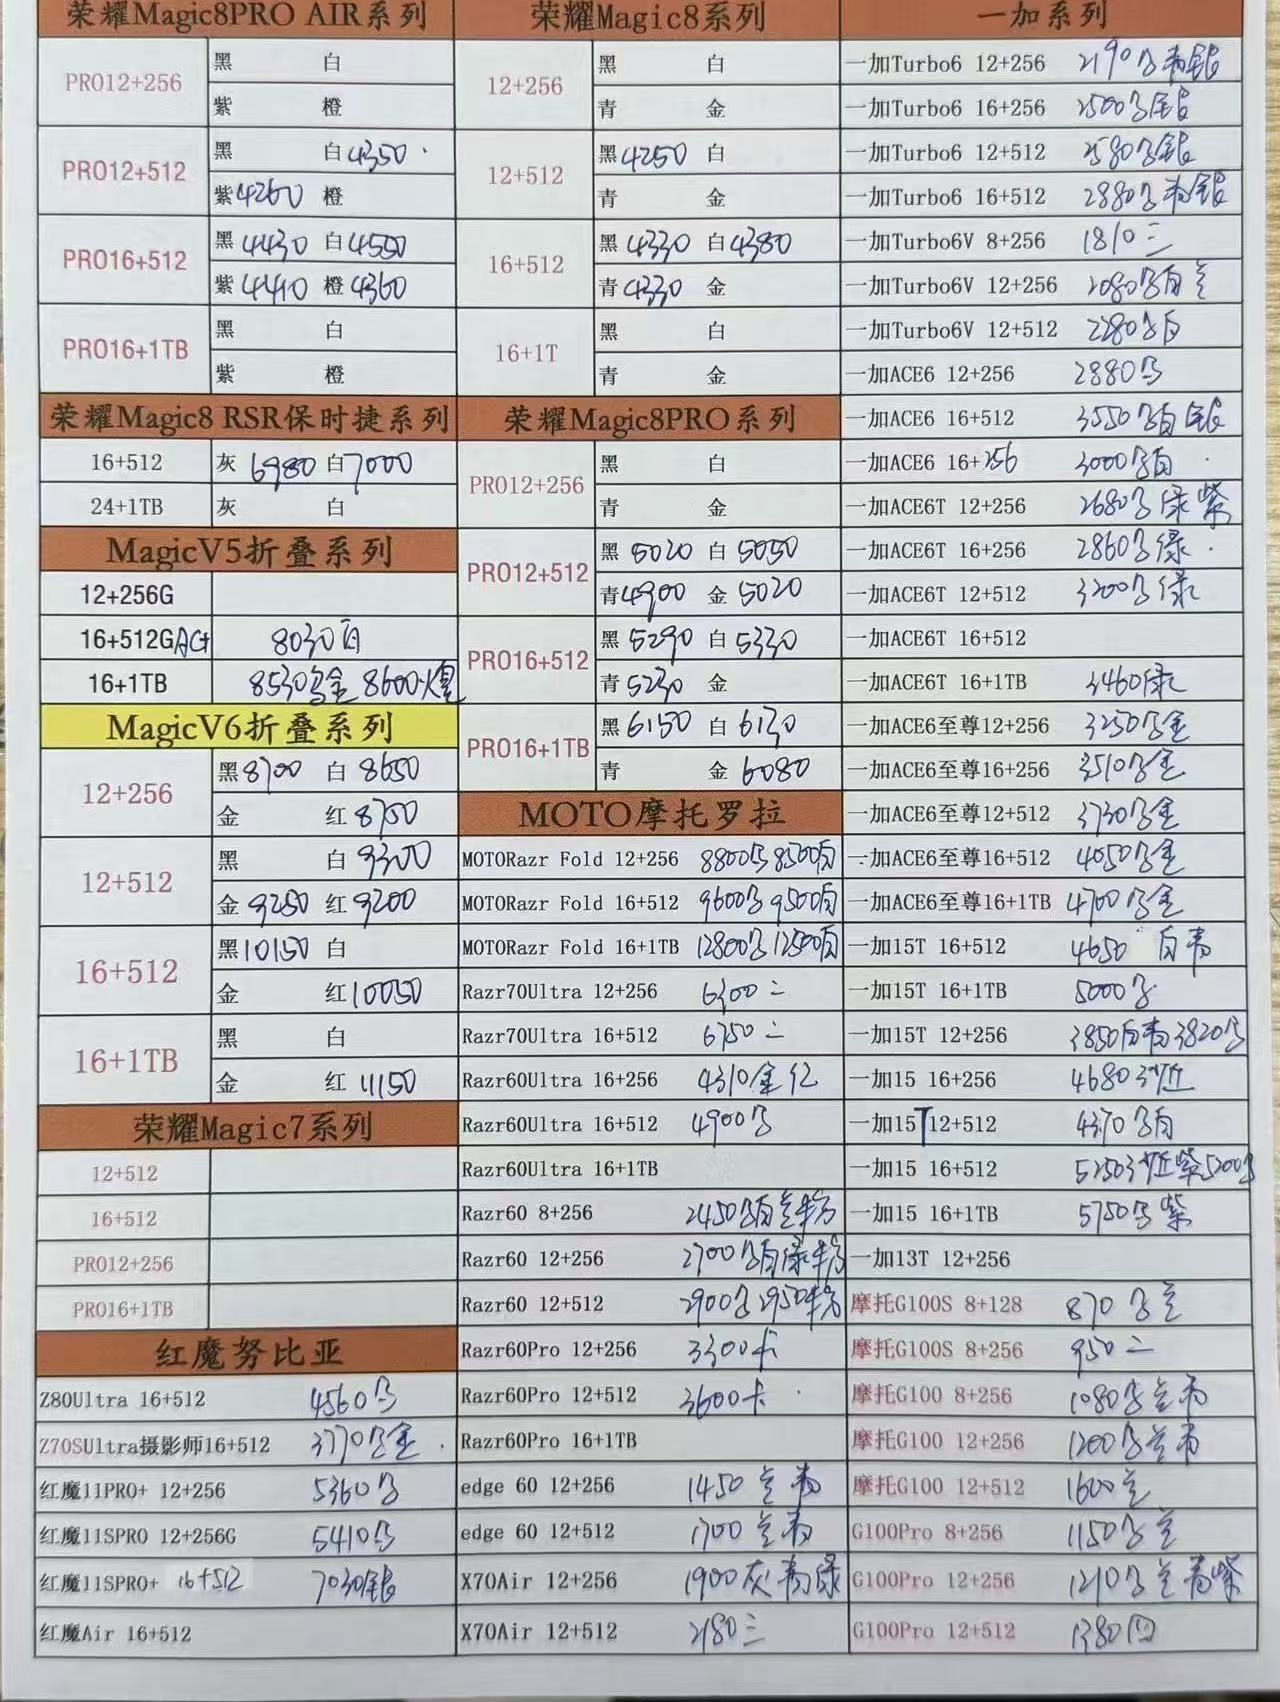 荣耀Magic8PRO AIR系列
PRO12+256
黑 白
紫 橙
PRO12+512
黑 白4350
紫4260 橙
PRO16+512
黑4430 白4550
紫4410 橙4360
PRO16+1TB
黑 白
紫 橙
荣耀Magic8 RSR保时捷系列
16+512 灰 6980 白7000
24+1TB 灰 白
MagicV5折叠系列
12+256G
16+512G 8030白
16+1TB 8530 金 8600
MagicV6折叠系列
12+256
黑8700 白8650
金 红8750
12+512
黑 白9300
金9250 红9200
16+512
黑10150 白
金 红10050
16+1TB
黑 白
金 红11150
荣耀Magic7系列
12+512
16+512
PRO12+256
PRO16+1TB
红魔努比亚
Z80Ultra 16+512 4560
Z70SUltra摄影师16+512 3770 金
红魔11PRO+ 12+256 5360
红魔11SPRO 12+256G 5410
红魔11SPRO+ 16+512 7030银
红魔Air 16+512
荣耀Magic8系列
12+256
黑 白
青 金
12+512
黑4250 白
青 金
16+512
黑4330 白4380
青4330 金
16+1T
黑 白
青 金
荣耀Magic8PRO系列
PRO12+256
黑 白
青 金
PRO12+512
黑5020 白5050
青4900 金5020
PRO16+512
黑5290 白5330
青5230 金
PRO16+1TB
黑6150 白6130
青 金6080
MOTO摩托罗拉
MOTORazr Fold 12+256 8800 8500白
MOTORazr Fold 16+512 9600 9500白
MOTORazr Fold 16+1TB 12800 12500白
Razr70Ultra 12+256 6300二
Razr70Ultra 16+512 6750二
Razr60Ultra 16+256 4310金红
Razr60Ultra 16+512 4900
Razr60Ultra 16+1TB
Razr60 8+256 2450 白兰粉
Razr60 12+256 2700 白绿粉
Razr60 12+512 2900 2950粉
Razr60Pro 12+256 3300卡
Razr60Pro 12+512 3600卡
Razr60Pro 16+1TB
edge 60 12+256 1450兰青
edge 60 12+512 1700兰青
X70Air 12+256 1900灰青绿
X70Air 12+512 2180三
一加系列
一加Turbo6 12+256 2190 青银
一加Turbo6 16+256 2500 银
一加Turbo6 12+512 2580 银
一加Turbo6 16+512 2880 青银
一加Turbo6V 8+256 1810三
一加Turbo6V 12+256 2080 白兰
一加Turbo6V 12+512 2280 白
一加ACE6 12+256 2880
一加ACE6 16+512 3550 白银
一加ACE6 16+256 3000 白
一加ACE6T 12+256 2680 绿紫
一加ACE6T 16+256 2860 绿
一加ACE6T 12+512 3200 绿
一加ACE6T 16+512
一加ACE6T 16+1TB 3460绿
一加ACE6至尊12+256 3250 金
一加ACE6至尊16+256 3510 金
一加ACE6至尊12+512 3730 金
一加ACE6至尊16+512 4050 金
一加ACE6至尊16+1TB 4700 金
一加15T 16+512 4650 白青
一加15T 16+1TB 5000
一加15T 12+256 3850白青3820
一加15 16+256 4680
一加15T12+512 4370 白
一加15 16+512 5250 紫5200
一加15 16+1TB 5750 紫
一加13T 12+256
摩托G100S 8+128 870 兰
摩托G100S 8+256 950二
摩托G100 8+256 1080 兰青
摩托G100 12+256 1200 兰青
摩托G100 12+512 1600兰
G100Pro 8+256 1150 兰
G100Pro 12+256 1210 兰青紫
G100Pro 12+512 1380四